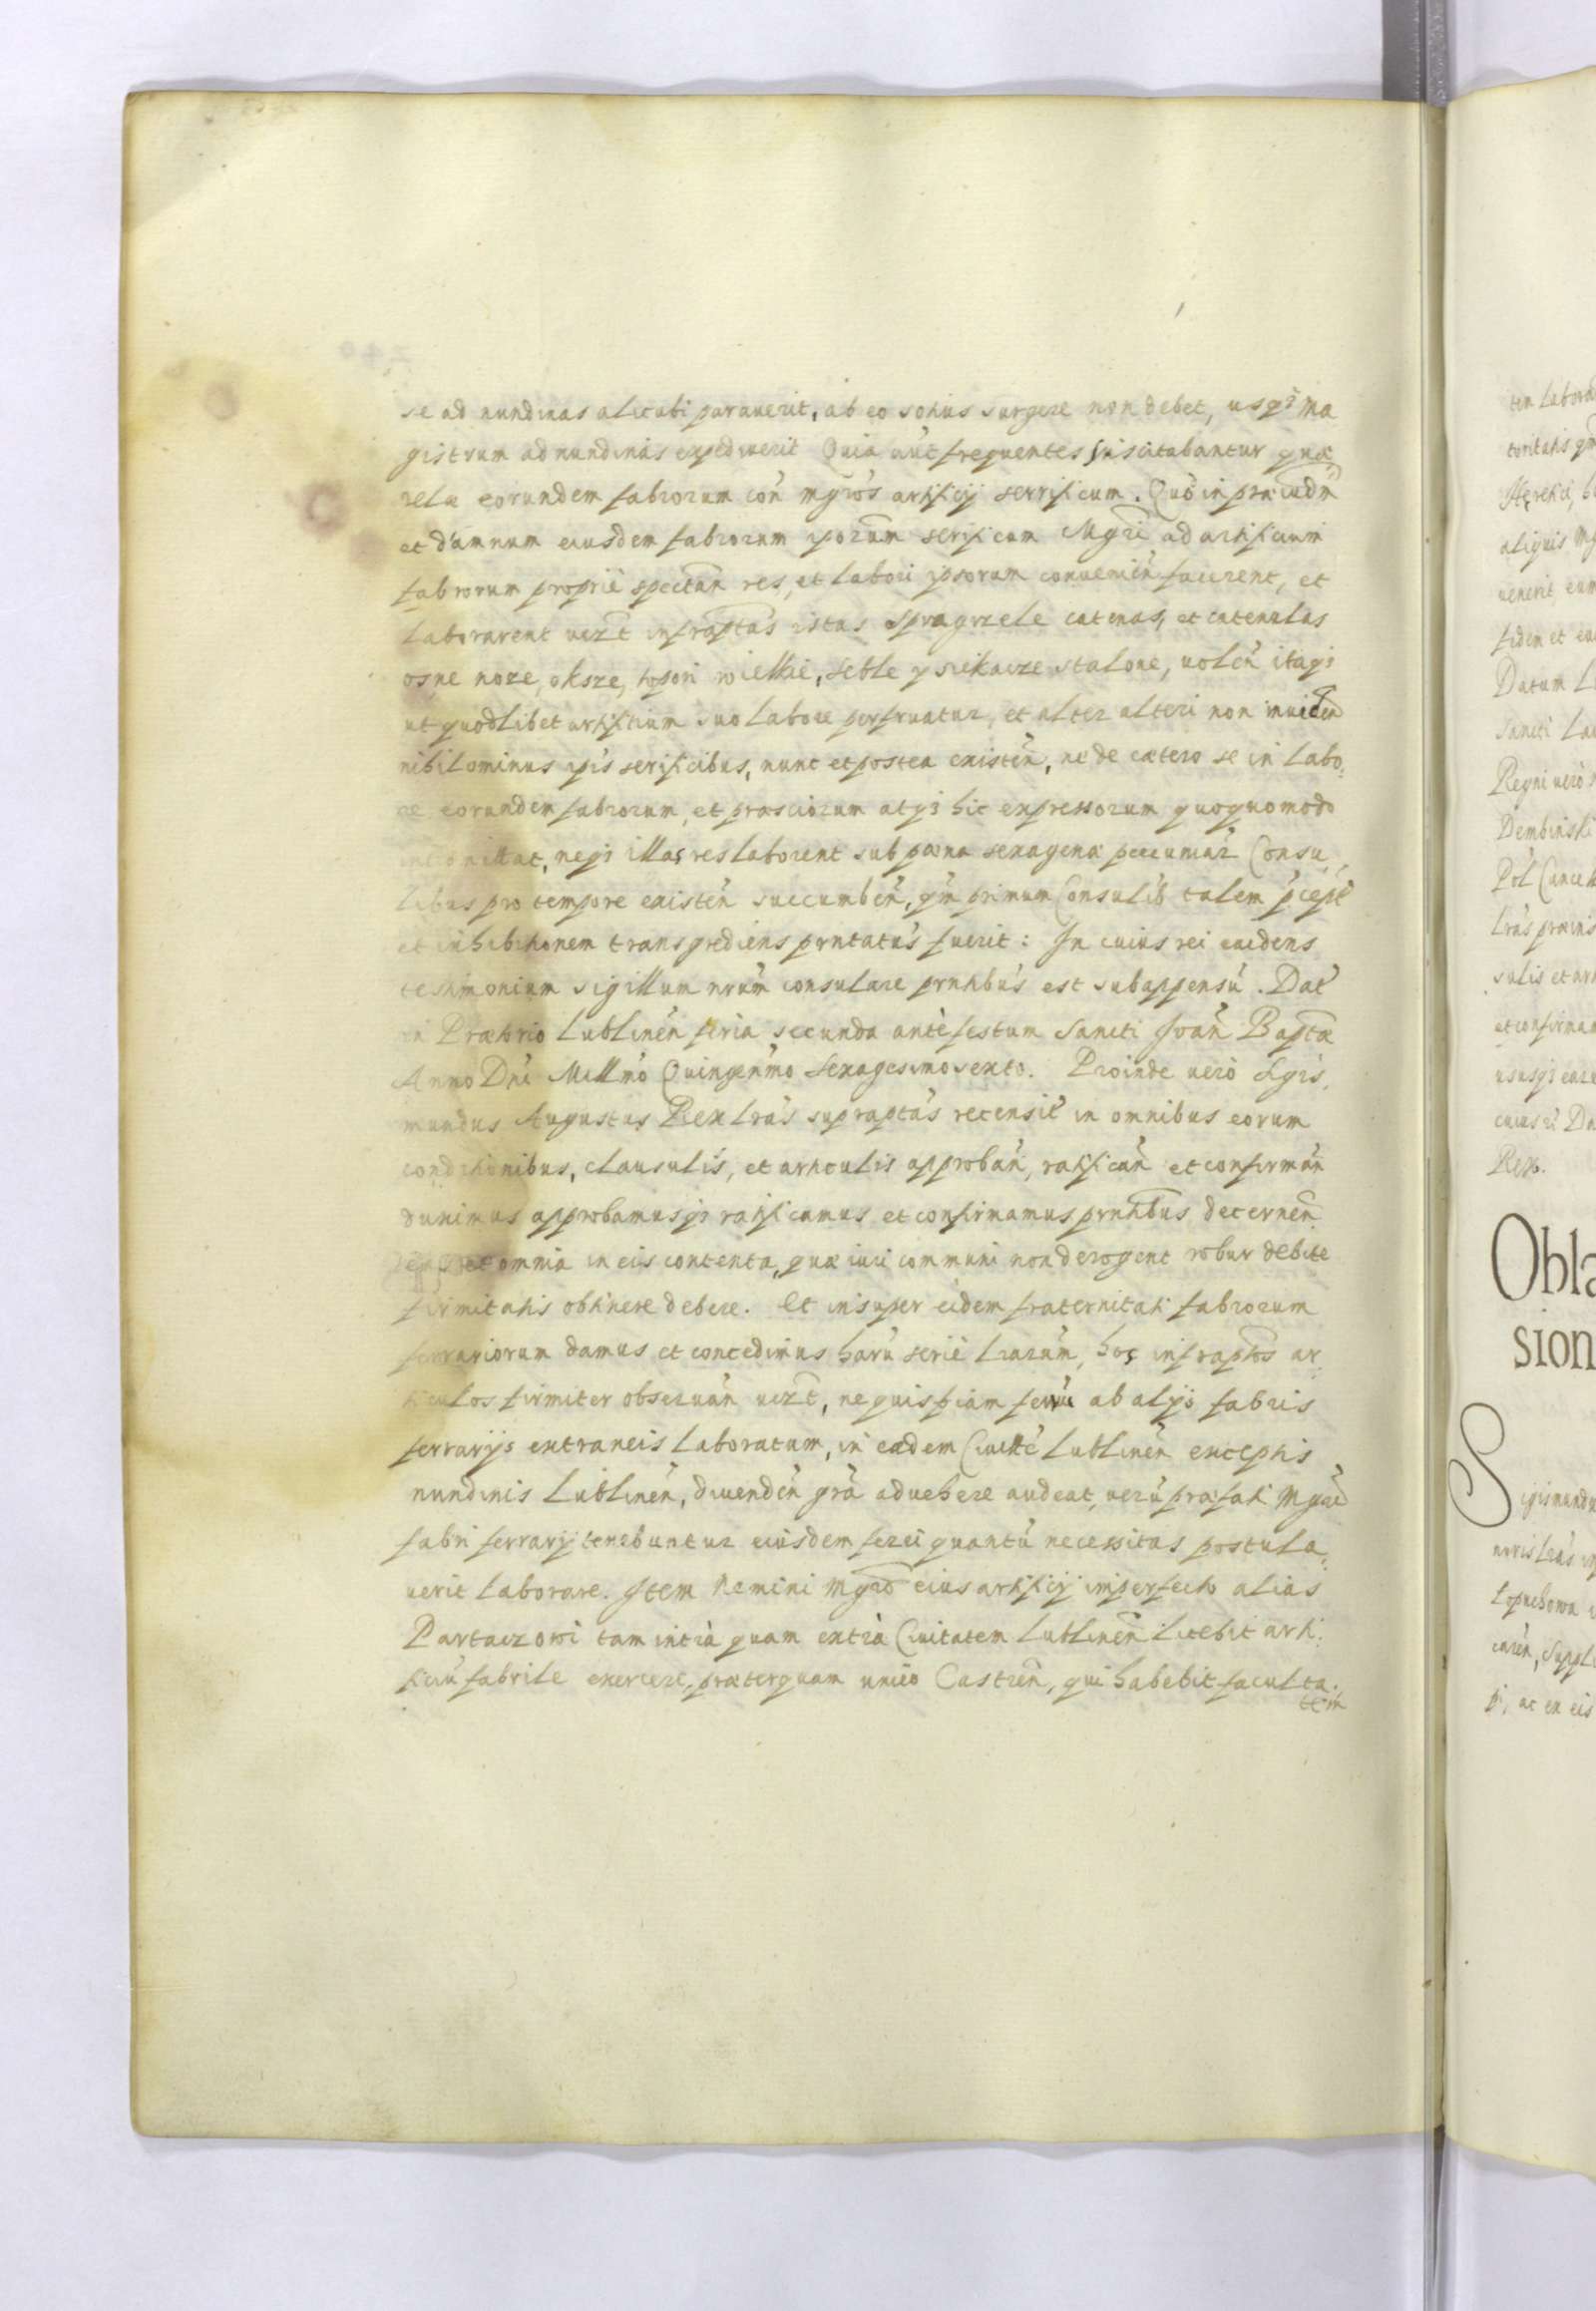 se ad nundinas alicubi parauerit, ab eo socius surgere non debet, usq₃ Ma
gistrum ad nundinas expediuerit Quia aut̃ frequentes suscitabantur quæ
relæ eorundem fabrorum con̄ mgr̄os artificij serrificum. Quō in præiudm̄
et damnum eiusdem fabrorum ipsorum serificum Mgrī ad artificium
fabrorum propriè spectañ res, et labori ipsorum conuenieñ facerent, et
laborarent uizt̃ infraptas istas spragrzele catenas, et catenulas
osne noze, oksze, topori wielkie, seble y siekacze stalone, uoleñ itaq₃
ut quodlibet artificium suo labore perfruatur, et alter alteri non inuideat
nihilominus ip̄is serificibus, nunc et postea existeñ, ne de cætero se in labo
re eorundem fabrorum, et præscriorum atq₃ hic expressorum quoquomodo
intromittat, neq₃ illas res laborent sub pæna sexagenæ pecuniar̄ Consu
libus pro tempore existeñ succumbeñ, qm̄ primum Consulib₃ talem p̄cept̃
et inhibitionem transgrediens prntatus fuerit: In cuius rei euidens
testimonium sigillum nrūm consulare prntibus est subappensū. Dat̃
in Prætorio Lublineñ feria secunda antè festum Sancti Joañ Baptæ
Anno Dnī Millm̄o Quingenm̄o sexagesimo sexto. Proinde uerò Sigis
mundus Augustus Rex Lrās supraptas recensit̃ in omnibus eorum
conditionibus, clausulis, et articulis approbañ, ratificañ et confirmañ
duximus approbamusq₃ ratificamus et confirmamus prntibus decerneñ
et omnia in eis contenta, quæ iuri communi non derogent robur debitæ
firmitatis obtinere debere. Et insuper eidem fraternitati fabrorum
ferrariorum damus et concedimus harū serie Lrarūm, hos infraptos ar
ticulos firmiter obseruañ uizt̃, ne quispiam ferrū ab alijs fabris
ferrarijs extraneis laboratum, in eadem Ciuitte Lublineñ exceptis
nundinis Lublineñ, diuendeñ grā aduehere audeat, uerū præfati Mgrī
fabri ferrarij tenebuntur eiusdem ferri quantū necessitas postula
uerit laborare. Item Nemini Mgrō eius artificij imperfecto alias
Partaczowi tam intrà quam extrà Ciuitatem Lublineñ licebit arti
ficiū fabrile exercere, præterquam unico Castreñ, qui habebit faculta
tem
ten Labora
Datum L
Sancti Lau
Regni uerò
Dembinski
Pol Cancell
Lrās præins
sulis et art
et confirman
ususq₃ eare
Rex.
Obla
sion
Sigismundu